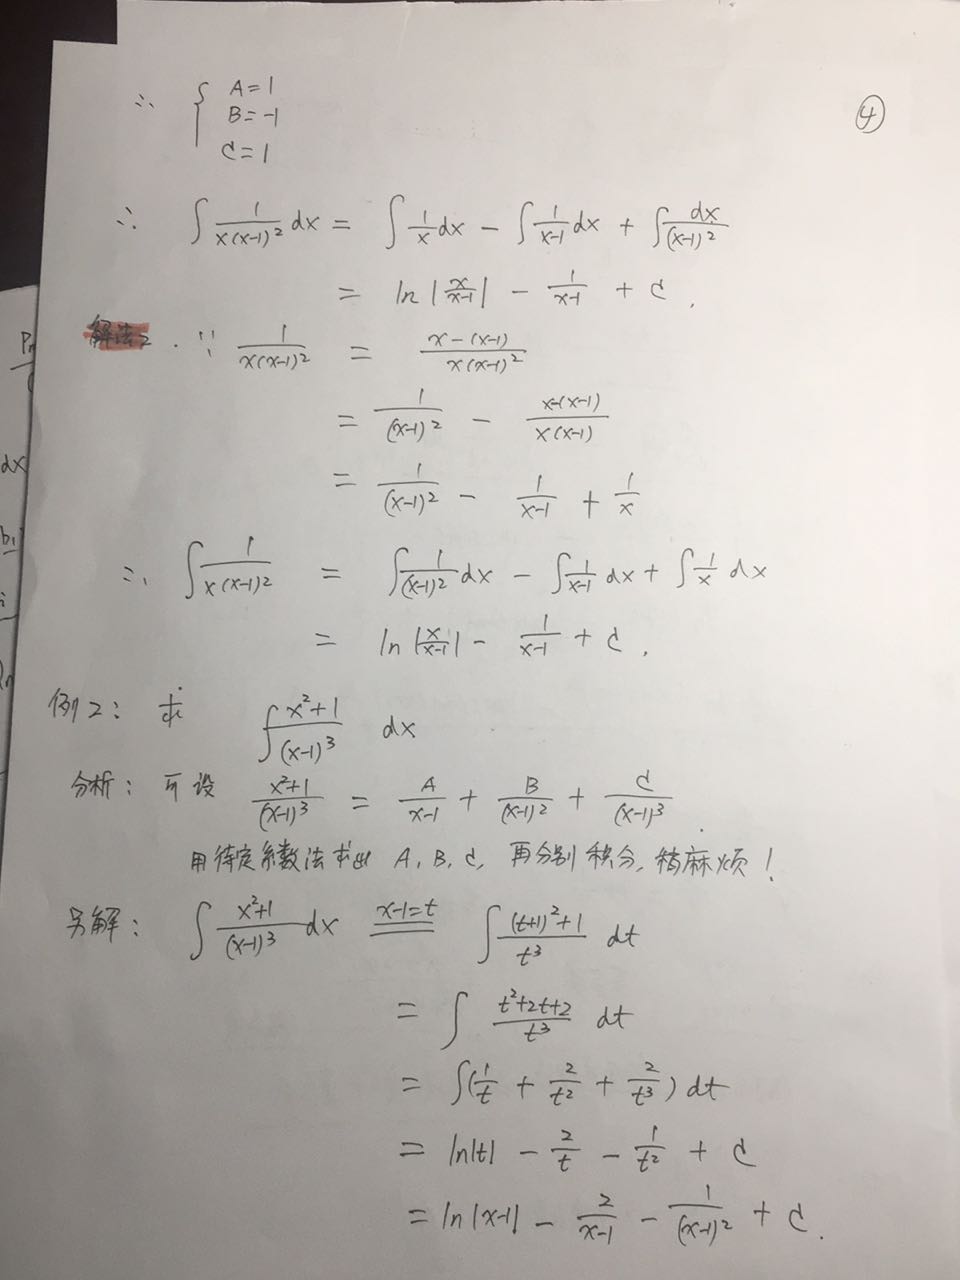 ④
∴ { A=1
B=-1
C=1
∴ ∫ 1/(x(x-1)²) dx = ∫ 1/x dx - ∫ 1/(x-1) dx + ∫ dx/(x-1)²
= ln |x/(x-1)| - 1/(x-1) + C .
解法2 . ∵ 1/(x(x-1)²) = (x-(x-1))/(x(x-1)²)
= 1/(x-1)² - (x-(x-1))/(x(x-1))
= 1/(x-1)² - 1/(x-1) + 1/x
∴ ∫ 1/(x(x-1)²) = ∫ 1/(x-1)² dx - ∫ 1/(x-1) dx + ∫ 1/x dx
= ln |x/(x-1)| - 1/(x-1) + C .
例2: 求 ∫ (x²+1)/(x-1)³ dx
分析: 可设 (x²+1)/(x-1)³ = A/(x-1) + B/(x-1)² + C/(x-1)³ .
用待定系数法求出 A, B, C, 再分别积分, 稍麻烦!
另解: ∫ (x²+1)/(x-1)³ dx x-1=t ∫ ((t+1)²+1)/t³ dt
= ∫ (t²+2t+2)/t³ dt
= ∫(1/t + 2/t² + 2/t³) dt
= ln|t| - 2/t - 1/t² + C
= ln|x-1| - 2/(x-1) - 1/(x-1)² + C .
dx